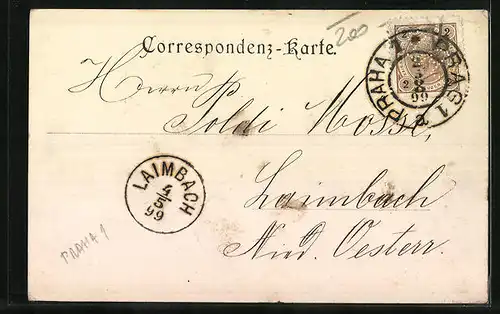 200
Correspondenz-Karte.
PRAHA 1 * PRAG 1
3
5
99
2
Herrn
Poldi Mosse,
LAIMBACH
4/5
99
Laimbach
Nied. Oesterr.
PRAHA 1